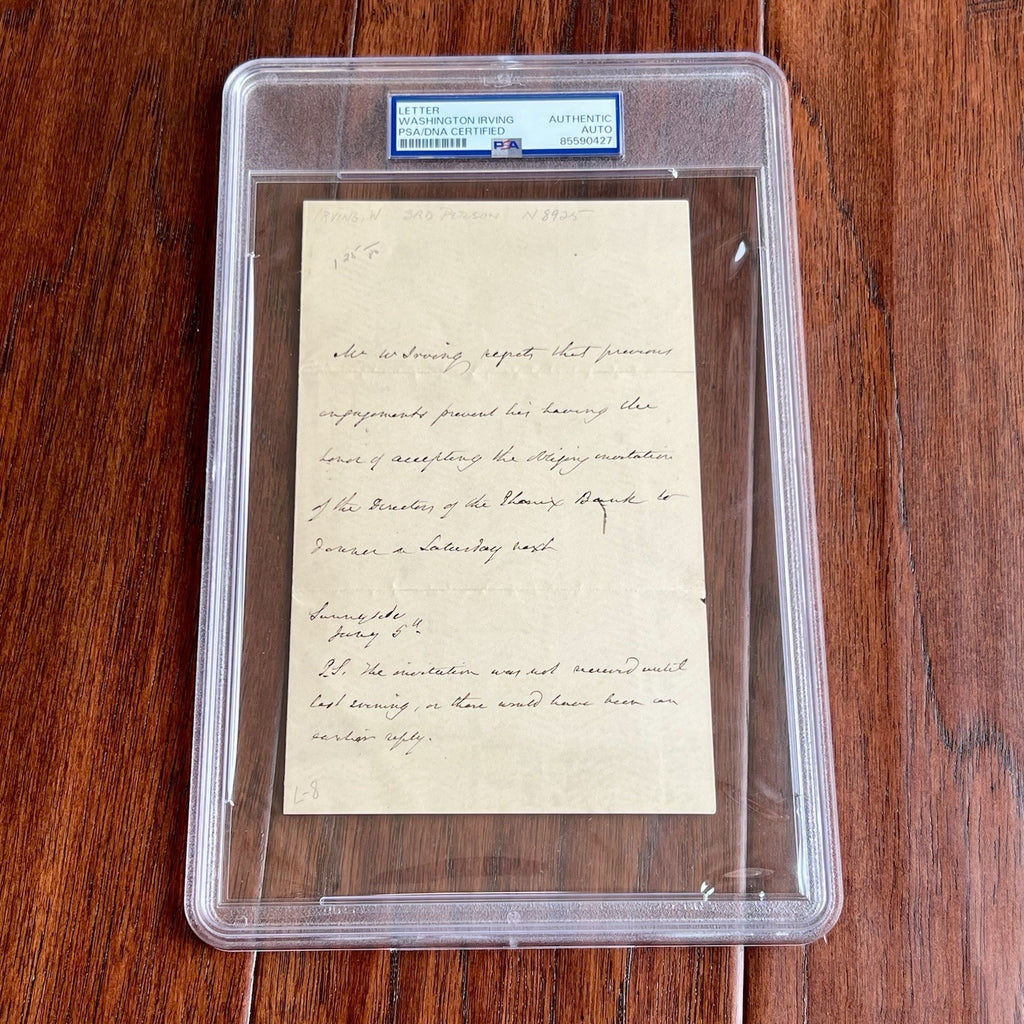 LETTER
WASHINGTON IRVING
PSA/DNA CERTIFIED
AUTHENTIC
AUTO
85590427
PSA
IRVING, W 3RD PERSON N8925
Mr W Irving regrets that previous
engagements prevent his having the
honor of accepting the obliging invitation
of the Directors of the Phenix Bank to
dinner on Saturday next
Sunnyside
5th
P.S. The invitation was not received until
last evening, or there would have been an
earlier reply.
L-8